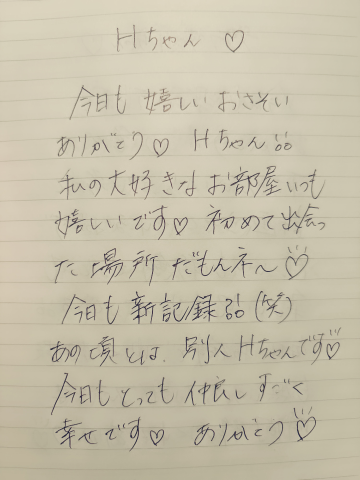 Hちゃん ♡
今日も 嬉しい おさそい
ありがとう♡ Hちゃん!!
私の大好きな お部屋いつも
嬉しいです♡ 初めて出会っ
た 場所 だもんネ〜♡
今日も 新記録!!(笑)
あの頃とは、別人Hちゃんです♡
今日も とっても 仲良し すごく
幸せです♡ ありがとう♡